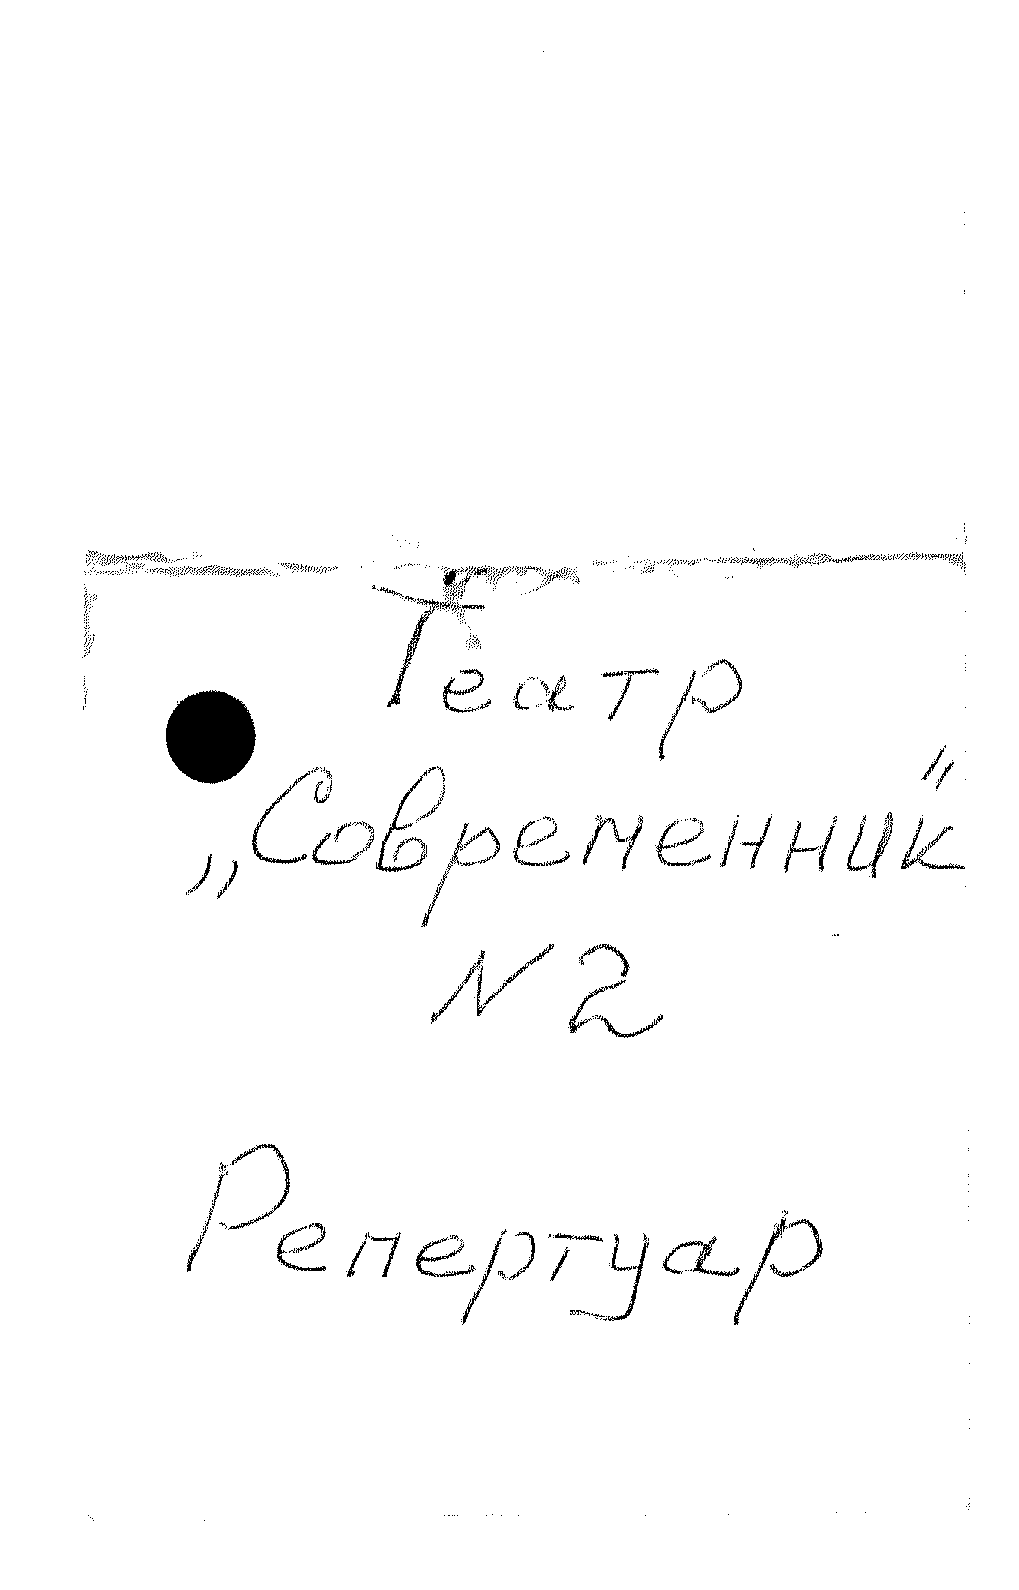 Театр
„Современник"
N 2
Репертуар